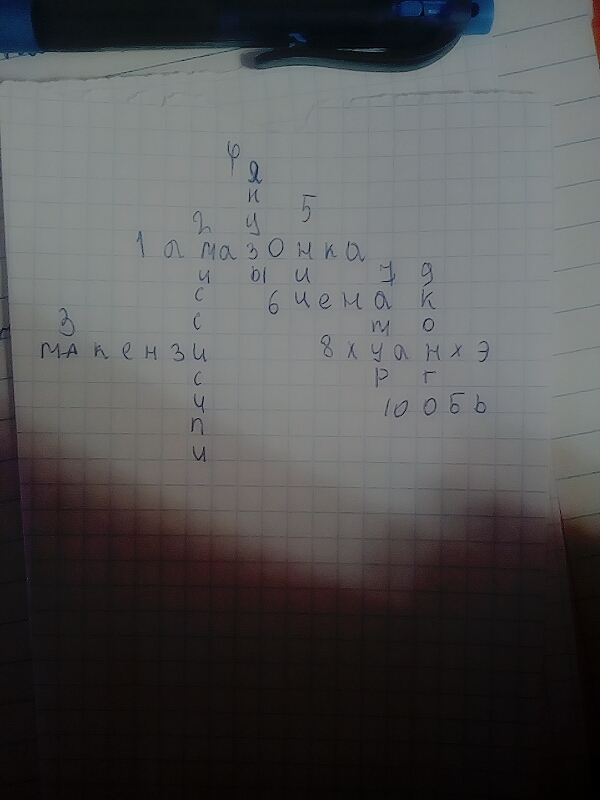 4 я
н
2 у 5
1 амазонка
и ы и 7 9
с 6 лена к
3 с м о
макензи 8 хуанхэ
с р г
и 10 обь
п
и